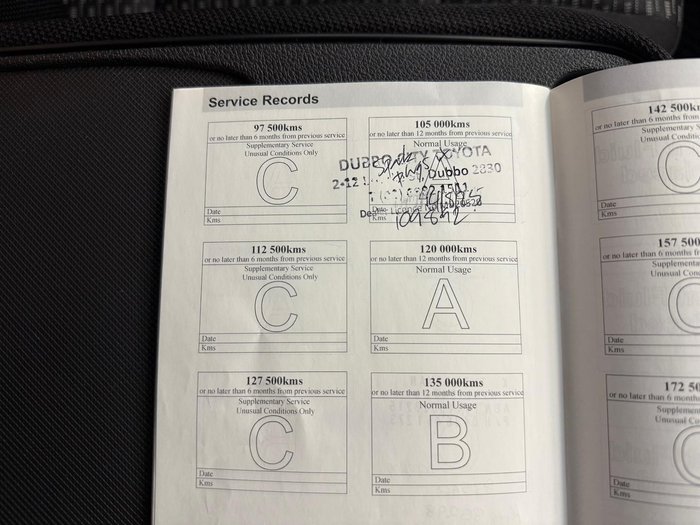 Service Records
97 500kms
or no later than 6 months from previous service
Supplementary Service
Unusual Conditions Only
C
Date
Kms
105 000kms
or no later than 12 months from previous service
Normal Usage
DUBBO CITY TOYOTA
Dubbo 2830
Date
Kms
109892
112 500kms
or no later than 6 months from previous service
Supplementary Service
Unusual Conditions Only
C
Date
Kms
120 000kms
or no later than 12 months from previous service
Normal Usage
A
Date
Kms
127 500kms
or no later than 6 months from previous service
Supplementary Service
Unusual Conditions Only
C
Date
Kms
135 000kms
or no later than 12 months from previous service
Normal Usage
B
Date
Kms
142 500
or no later than 6 months from
Supplementary
Unusual
C
Date
Kms
157 500
or no later than 6 months
Supplementa
Unusual Con
C
Date
Kms
172 50
or no later than 6 months
Supplemen
Unusual Co
C
Date
Kms